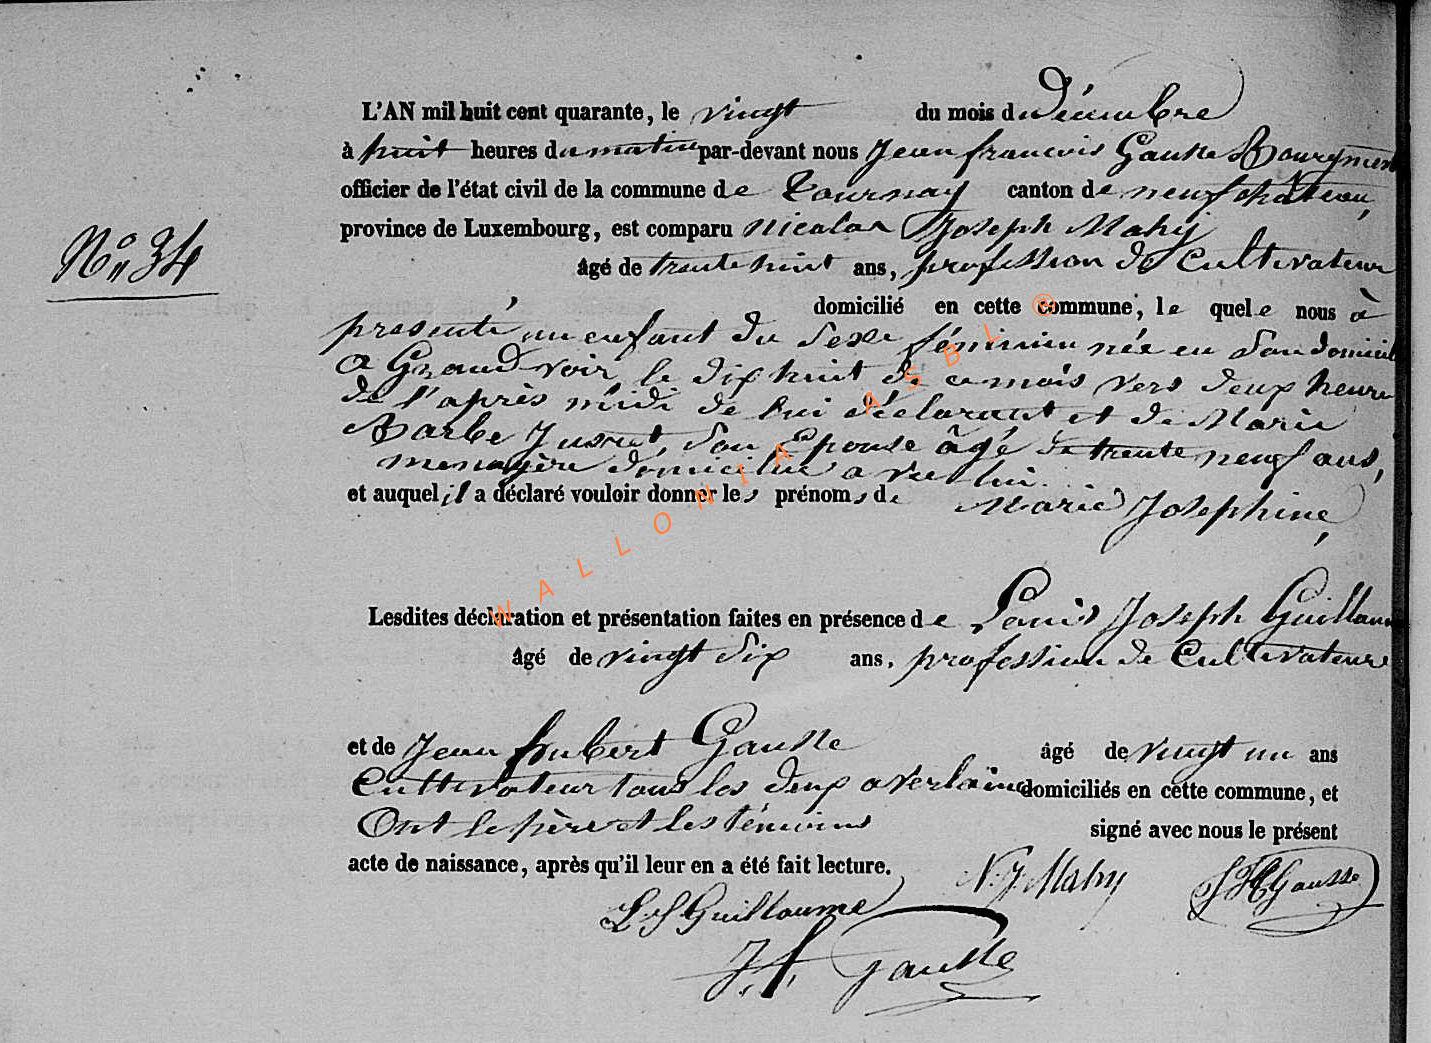 L'AN mil huit cent quarante, le vingt du mois de Décembre
à huit heures du matin par-devant nous Jean françois Gausse Bourgmest
officier de l'état civil de la commune de Tournay canton de neufchâteau,
province de Luxembourg, est comparu Nicolas Joseph Mahy
N° 34
âgé de trente huit ans, profession de Cultivateur
domicilié en cette commune, le quel e nous à
presenté un enfant du sexe féminin née en son domicil
a Grandvoir le dix huit de ce mois vers deux heure
de l'après midi de lui déclarant et de Marie
Barbe son Epouse âgé de trente neuf ans,
menagère domicilié avec lui.
et auquel il a déclaré vouloir donner les prénoms de Marie Josephine,
Lesdites déclaration et présentation faites en présence de Louis Joseph Guillaum
âgé de vingt six ans, profession de Cultivateur
et de Jean hubert Gausse âgé de vingt un ans
Cultivateur tous les deux a verlaine domiciliés en cette commune, et
Ont le père et les témoins signé avec nous le présent
acte de naissance, après qu'il leur en a été fait lecture.
N. J Mahy JH Gausse
L J Guillaume
J. f. Gausse
WALLONIA ASBL ©